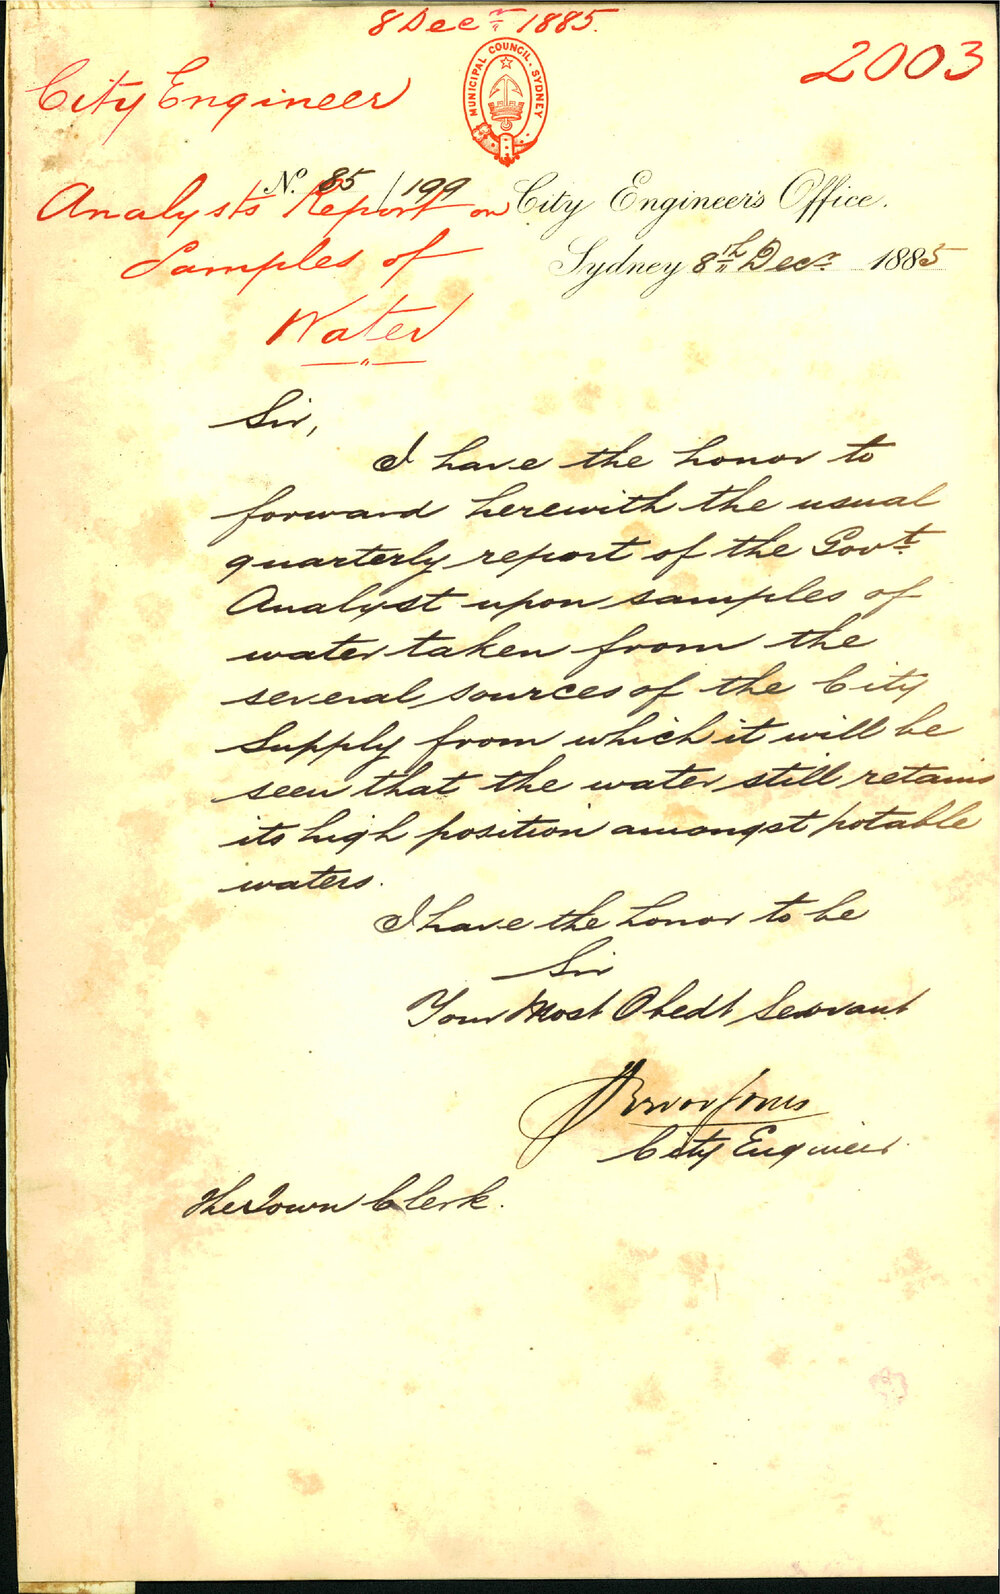 8 Decr 1885.
2003
City Engineer
MUNICIPAL COUNCIL. SYDNEY
No. 85/199
Analysts Report on
Samples of
Water
City Engineer's Office.
Sydney 8th Decr 1885
Sir,
I have the honor to
forward herewith the usual
quarterly report of the Govt
Analyst upon samples of
water taken from the
several sources of the City
Supply from which it will be
seen that the water still retains
its high position amongst potable
waters.
I have the honor to be
Sir
Your Most Obedt Servant
Trevor Jones
City Engineer
The Town Clerk.